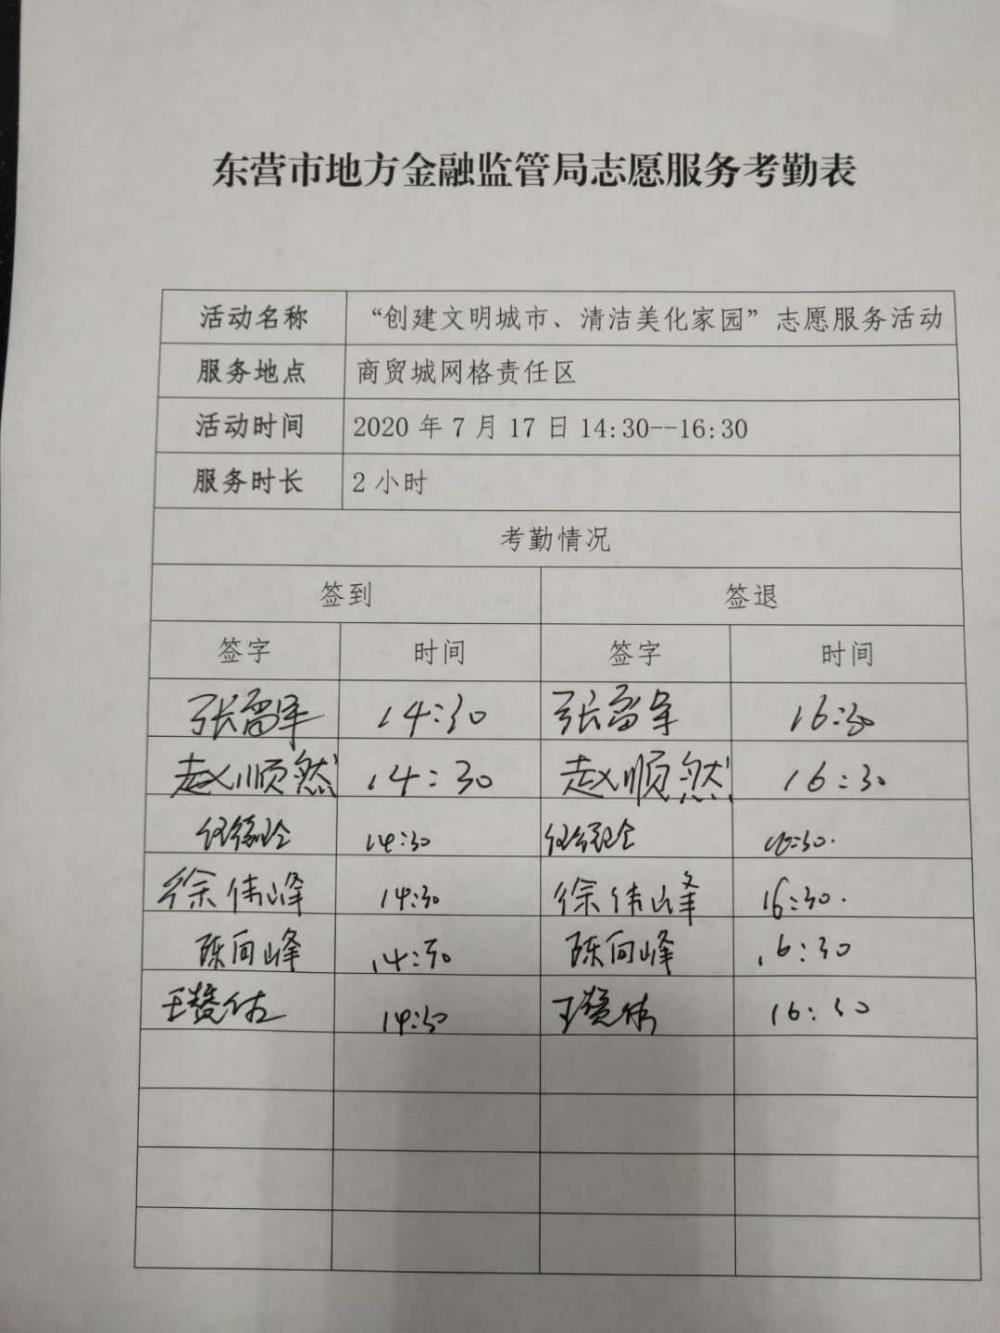 东营市地方金融监管局志愿服务考勤表
活动名称 “创建文明城市、清洁美化家园”志愿服务活动
服务地点 商贸城网格责任区
活动时间 2020年7月17日14:30--16:30
服务时长 2小时
考勤情况
签到 签退
签字 时间 签字 时间
张 14:30 张 16:30
赵顺然 14:30 赵顺然 16:30
14:30 16:30.
徐伟峰 14:30 徐伟峰 16:30.
陈向峰 14:30 陈向峰 16:30
王 14:30 王 16:30